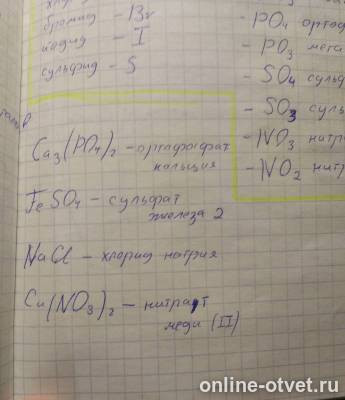 бромид - Br
иодид - I
сульфид - S
- PO4
- PO3 мета
- SO4 суль
- SO3 суль
- NO3 нитра
- NO2 нитр
Ca3(PO4)2 - ортофосфат
кальция
FeSO4 - сульфат
железа 2
NaCl - хлорид натрия
Cu(NO3)2 - нитрат
меди (II)
online-otvet.ru